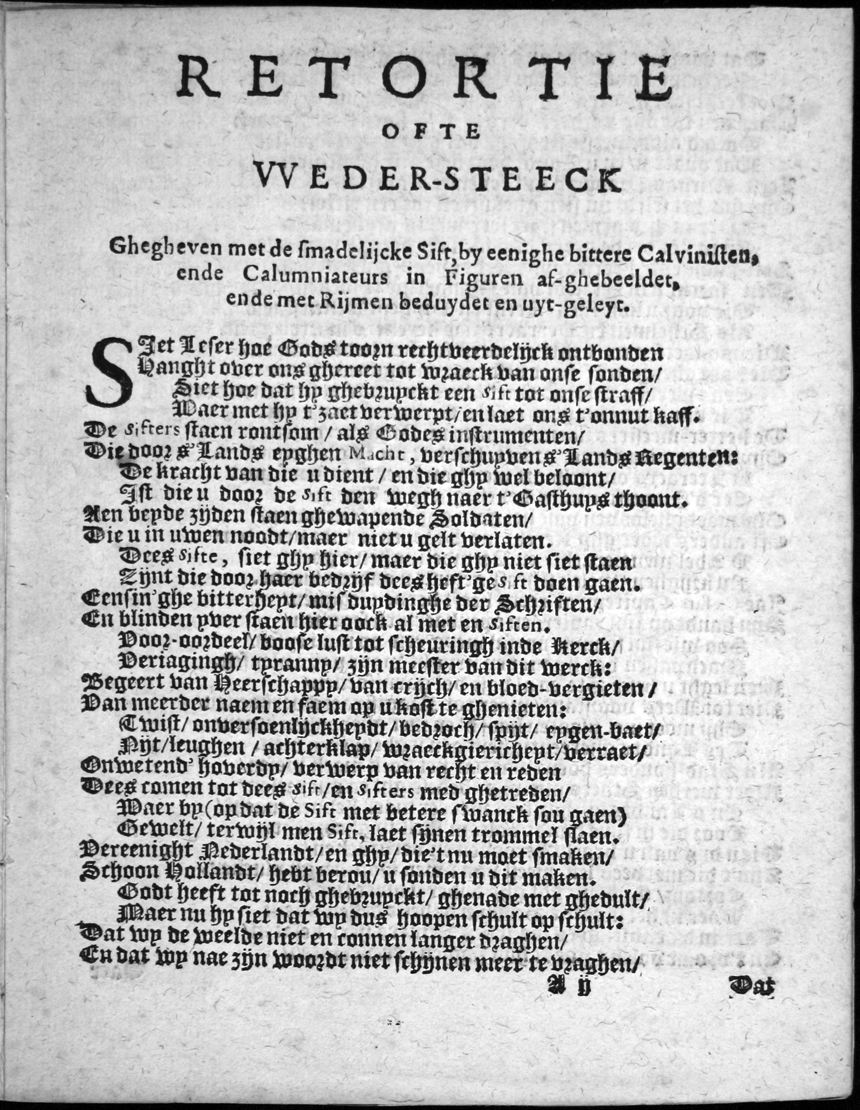 RETORTIE
OFTE
VVEDER-STEECK
Ghegheven met de smadelijcke Sift, by eenighe bittere Calvinisten,
ende Calumniateurs in Figuren af-ghebeeldet,
ende met Rijmen beduydet en uyt-geleyt.
SJet Leser hoe Gods toorn rechtveerdelijck ontbonden
Hanght over ons ghereet tot wraeck van onse sonden/
Siet hoe dat hy ghebruyckt een Sift tot onse straff/
Waer met hy t'zaet verwerpt/en laet ons t'onnut kaff.
De Sifters staen rontsom / als Godes instrumenten/
Die door s'Lands eyghen Macht, verschuyven s'Lands Regenten:
De kracht van die u dient / en die ghy wel beloont/
Jst die u door de Sift den wegh naer t'Gasthuys thoont.
Aen beyde zijden staen ghewapende Soldaten/
Die u in uwen noodt/maer niet u gelt verlaten.
Dees Sifte, siet ghy hier/ maer die ghy niet siet staen
Zijnt die door haer bedrijf dees heft'ge Sift doen gaen.
Eensin'ghe bitterheyt/ misduydinghe der Schriften/
En blinden yver staen hier oock al met en Siften.
Voor-oordeel/ boose lust tot scheuringh inde Kerck/
Veriagingh/ tyranny/ zijn meester van dit werck:
Begeert van Heerschappy/ van crijch/ en bloed-vergieten /
Van meerder naem en faem op u kost te ghenieten:
Twist/ onversoenlijckheydt/ bedroch/ spijt/ eygen-baet/
Nijt/leughen / achterklap/ wraeckgiericheyt/verraet/
Onwetend' hoverdy/ verwerp van recht en reden
Dees comen tot dees Sift/en Sifters med ghetreden/
Waer by (op dat de Sift met betere swanck sou gaen)
Gewelt/ terwijl men Sift, laet sijnen trommel slaen.
Vereenight Nederlandt/ en ghy/ die't nu moet smaken/
Schoon Hollandt/ hebt berou/ u sonden u dit maken.
Godt heeft tot noch ghebruyckt/ ghenade met ghedult/
Maer nu hy siet dat wy dus hoopen schult op schult:
Dat wy de weelde niet en connen langer draghen/
En dat wy nae zijn woordt niet schijnen meer te vraghen/
A ij Dat